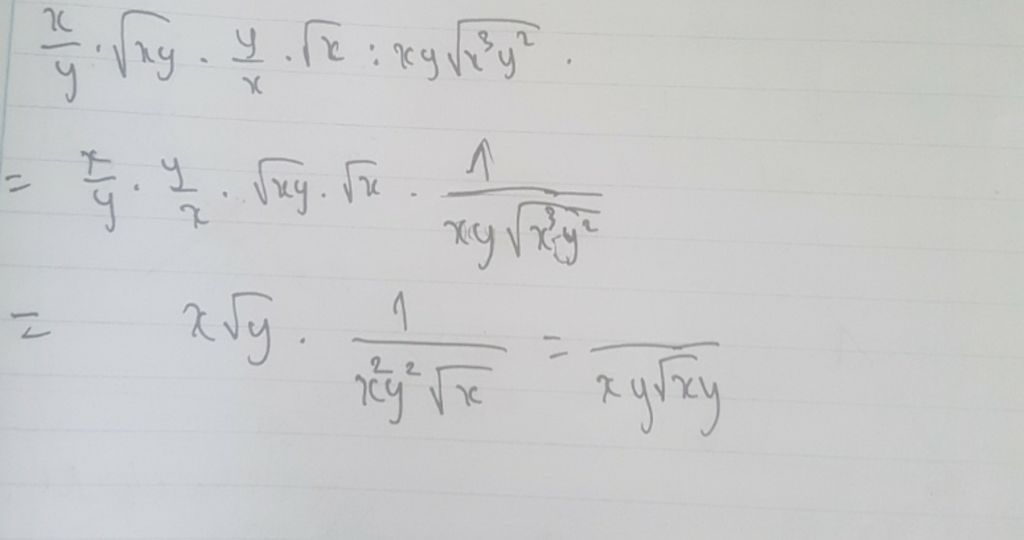 x/y · √xy · y/x · √x : xy√x³y² .
= x/y · y/x · √xy · √x · 1/xy√x³y²
= x√y · 1/x²y²√x = /xy√xy